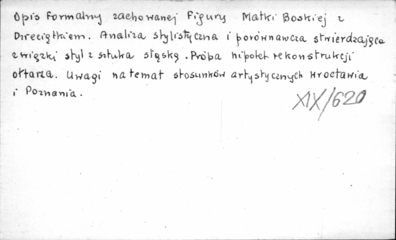 Opis formalny zachowanej figury Matki Boskiej z
Dzieciątkiem. Analiza stylistyczna i porównawcza stwierdzająca
związki styl z sztuka śląską. Próba hipotet rekonstrukcji
ołtarza. Uwagi na temat stosunków artystycznych Wrocławia
i Poznania.
XIX/620